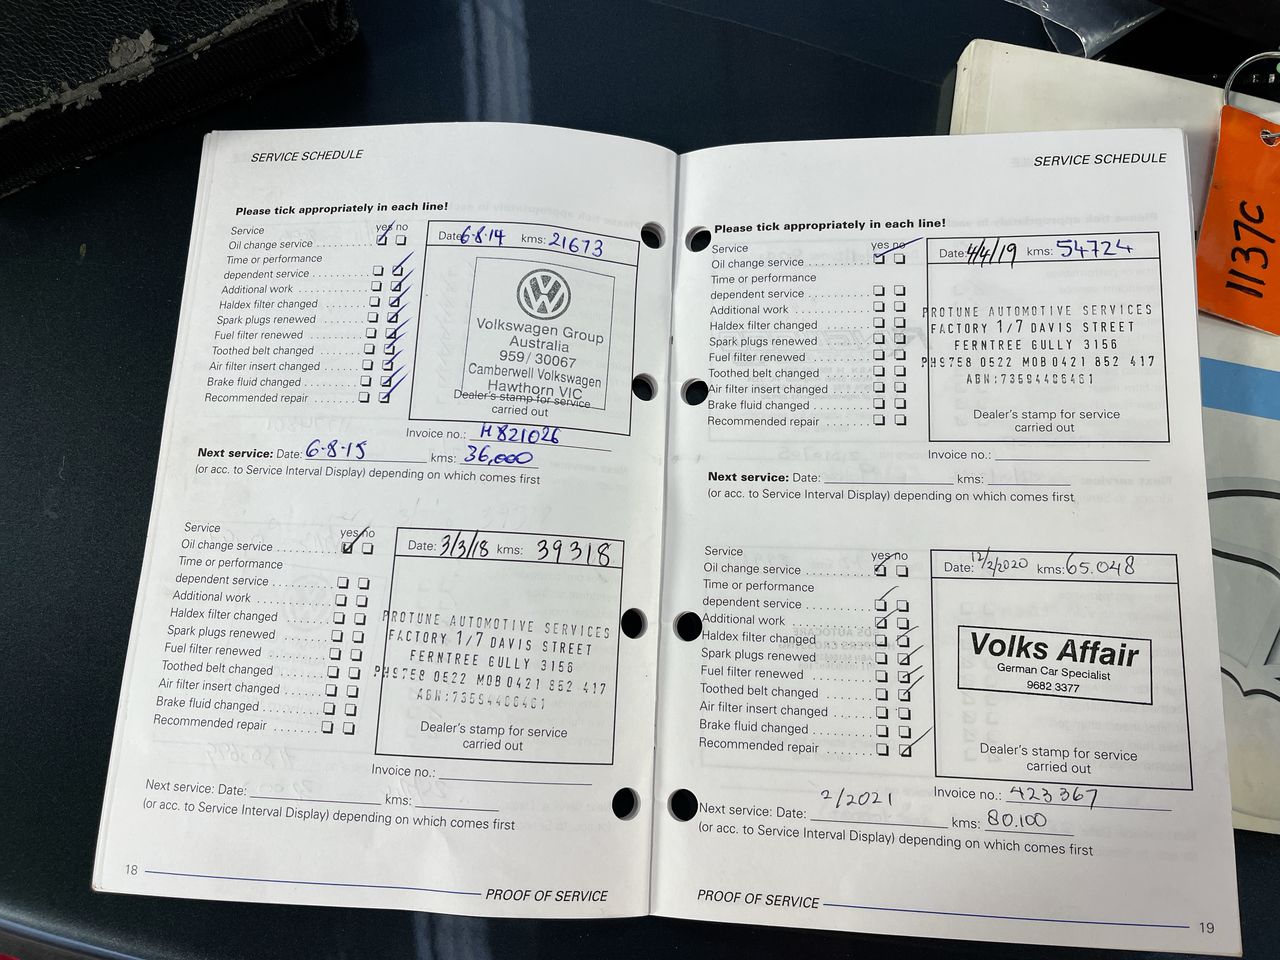 SERVICE SCHEDULE
Please tick appropriately in each line!
Service
yes no
Oil change service
Time or performance
dependent service
Additional work
Haldex filter changed
Spark plugs renewed
Fuel filter renewed
Toothed belt changed
Air filter insert changed
Brake fluid changed
Recommended repair
Date: 6·8·14 kms: 21673
Volkswagen Group
Australia
959/30067
Camberwell Volkswagen
Hawthorn VIC
Dealer's stamp for service
carried out
Invoice no.: H821026
Next service: Date: 6·8·15 kms: 36,000
(or acc. to Service Interval Display) depending on which comes first
Service
yes no
Oil change service
Time or performance
dependent service
Additional work
Haldex filter changed
Spark plugs renewed
Fuel filter renewed
Toothed belt changed
Air filter insert changed
Brake fluid changed
Recommended repair
Date: 3/3/18 kms: 39318
PROTUNE AUTOMOTIVE SERVICES
FACTORY 1/7 DAVIS STREET
FERNTREE GULLY 3156
PH9758 0522 MOB 0421 852 417
ABN:73594406461
Dealer's stamp for service
carried out
Invoice no.:
Next service: Date: kms:
(or acc. to Service Interval Display) depending on which comes first
18
PROOF OF SERVICE
SERVICE SCHEDULE
Please tick appropriately in each line!
Service
yes no
Oil change service
Time or performance
dependent service
Additional work
Haldex filter changed
Spark plugs renewed
Fuel filter renewed
Toothed belt changed
Air filter insert changed
Brake fluid changed
Recommended repair
Date: 4/4/19 kms: 54724
PROTUNE AUTOMOTIVE SERVICES
FACTORY 1/7 DAVIS STREET
FERNTREE GULLY 3156
PH9758 0522 MOB 0421 852 417
ABN:73594406461
Dealer's stamp for service
carried out
Invoice no.:
Next service: Date: kms:
(or acc. to Service Interval Display) depending on which comes first
Service
yes no
Oil change service
Time or performance
dependent service
Additional work
Haldex filter changed
Spark plugs renewed
Fuel filter renewed
Toothed belt changed
Air filter insert changed
Brake fluid changed
Recommended repair
Date: 12/2/2020 kms: 65.048
Volks Affair
German Car Specialist
9682 3377
Dealer's stamp for service
carried out
Invoice no.: 423367
Next service: Date: 2/2021 kms: 80.100
(or acc. to Service Interval Display) depending on which comes first
PROOF OF SERVICE
19
1137C